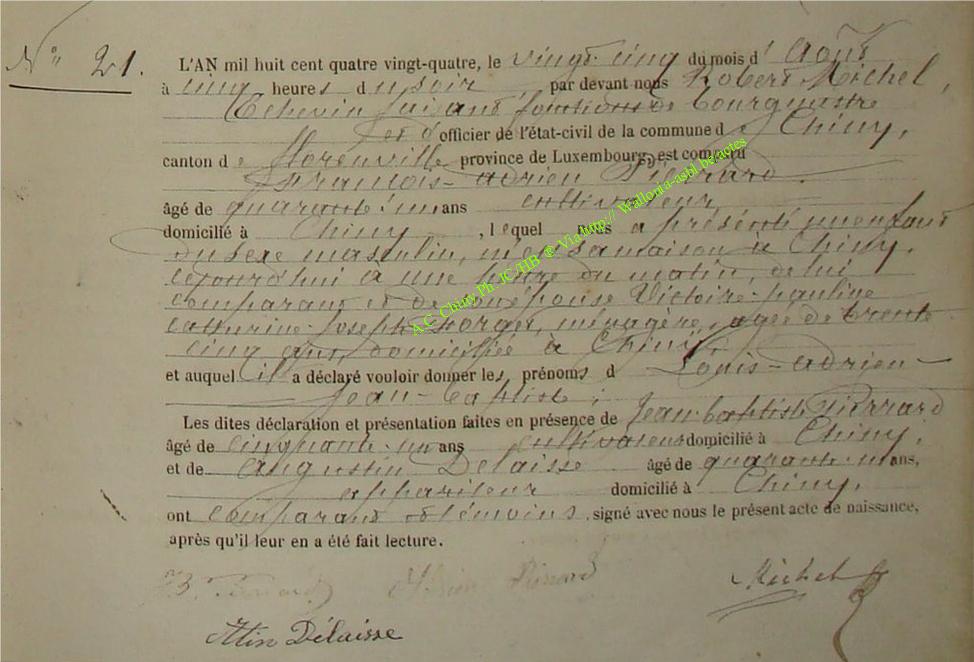 N° 21.
L'AN mil huit cent quatre vingt-quatre, le vingt cinq du mois d' Août
à cinq heures du soir, par devant nous Robert Michel,
Echevin faisant fonctions de bourgmestre
et d'officier de l'état-civil de la commune de Chiny,
canton de Florenville province de Luxembourg, est comparu
François-Adrien Pierrard.
âgé de quarante un ans cultivateur
domicilié à Chiny, lequel nous a présenté un enfant
du sexe masculin, né en sa maison à Chiny,
cejourd'hui à une heure du matin, de lui
comparant et de son épouse Victoire-pauline
catherine-Joseph, ménagère, agée de trente
cinq ans, domiciliée à Chiny.
et auquel il a déclaré vouloir donner les prénoms d Louis-adrien-
Jean-baptiste;
Les dites déclaration et présentation faites en présence de Jean-baptiste Pierrard
âgé de cinquante-un ans cultivateur domicilié à Chiny,
et de augustin Delaisse âgé de quarante-un ans,
appariteur domicilié à Chiny,
ont comparant et témoins, signé avec nous le présent acte de naissance,
après qu'il leur en a été fait lecture.
Pierrard Michel
Atin Délaisse
A.C. Chiny Ph JC/HB ® Via http:// Wallonia-asbl.be/actes